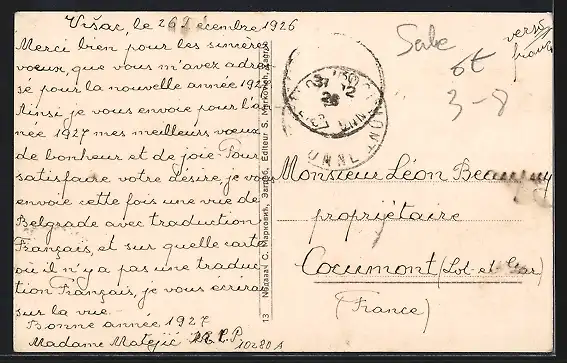 Višac, le 26 Décembre 1926
Merci bien pour les sincères
vœux, que vous m'avez adres-
sé pour la nouvelle année 1927
Ainsi je vous envoie pour l'an-
née 1927 mes meilleurs vœux
de bonheur et de joie. Pour
satisfaire votre désire, je vous
envoie cette fois une vue de
Belgrade avec traduction
Français, et sur quelle carte
où il n'y a pas une traduc-
tion Français, je vous écrirai
sur la vue.
Bonne année 1927
Madame Matejić
10280 A
13 Издавач С. Марковић, Загреб. Editeur S. Markovich, Zagreb
verso
3-8
Monsieur Léon
propriétaire
Cocumont (Lot-et-Gar)
(France)